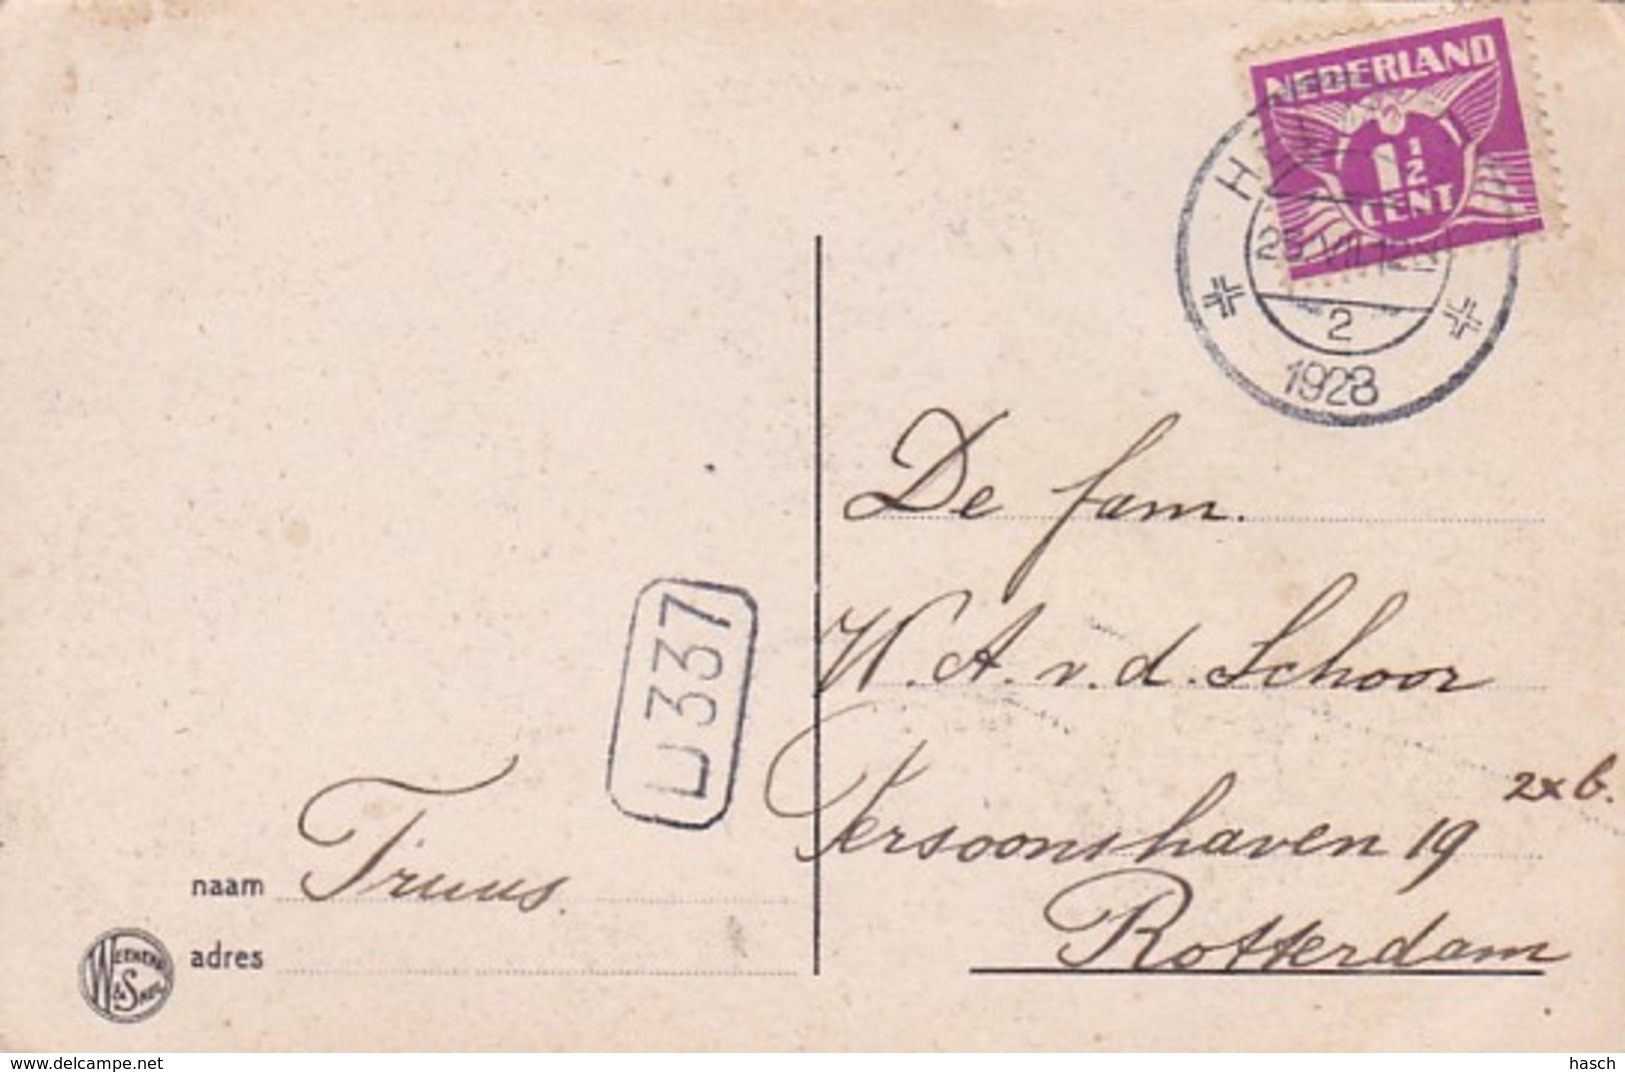 NEDERLAND
1½
CENT
2
1928
De fam.
W. A. v. d. Schoor
Persoonshaven 19 2x b.
Rotterdam
U337
naam Truus.
adres
WEENENK & SNEL
www.delcampe.net
hasch